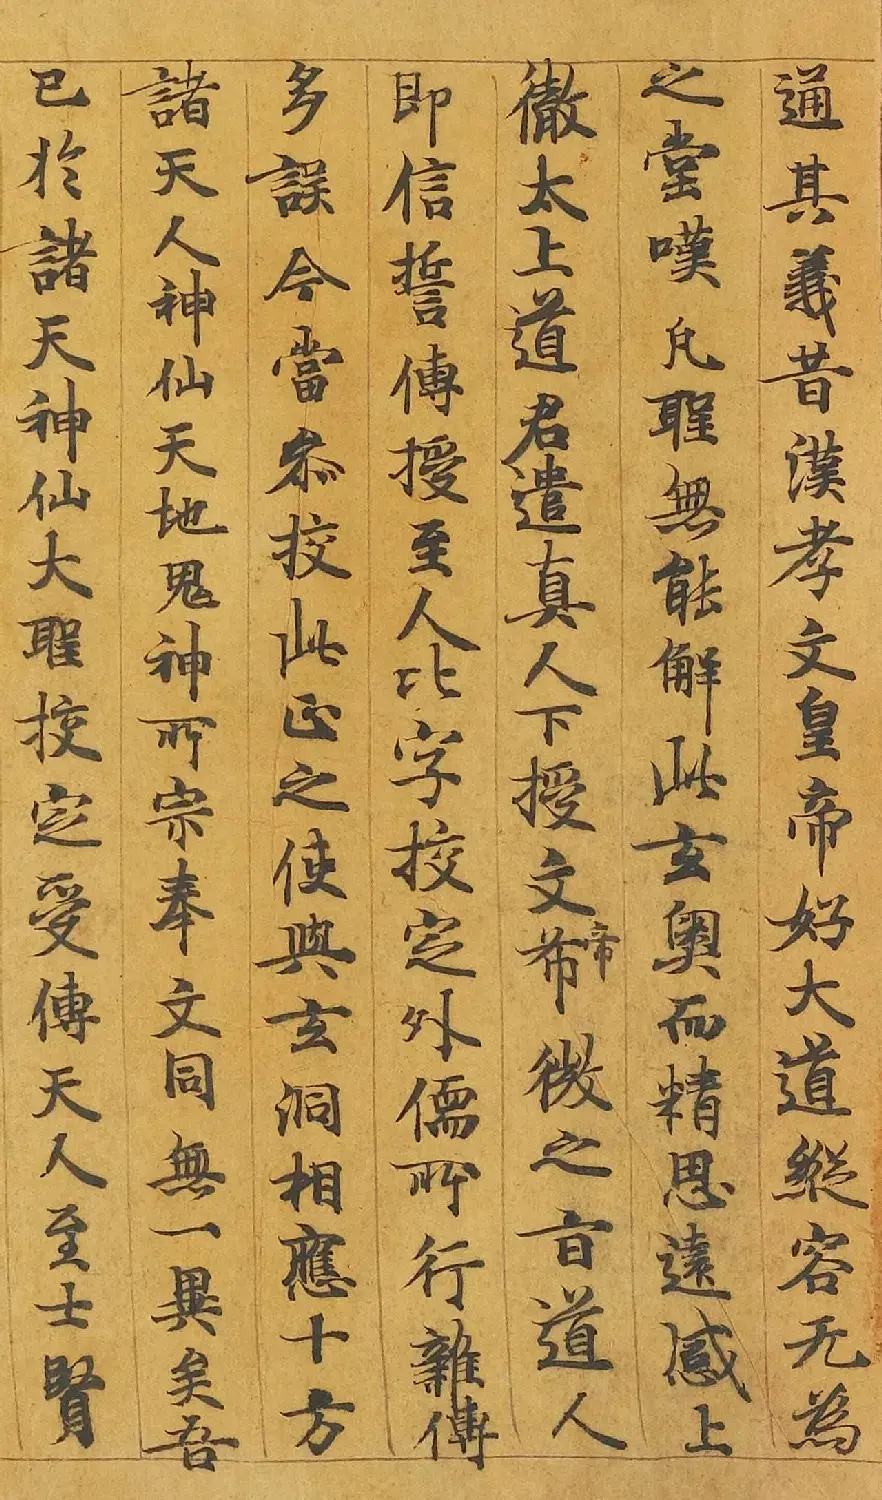 通其義昔漢孝文皇帝好大道縱容无為
之堂嘆凡聖無能解此玄奧而精思遠感上
徹太上道君遣真人下授文帝希微之旨道人
即信誓傳授至人比字挍定外儒所行雜傳
多誤今當叅挍此正之使與玄洞相應十方
諸天人神仙天地鬼神所宗奉文同無一異矣吾
已於諸天神仙大聖挍定受傳天人至士賢